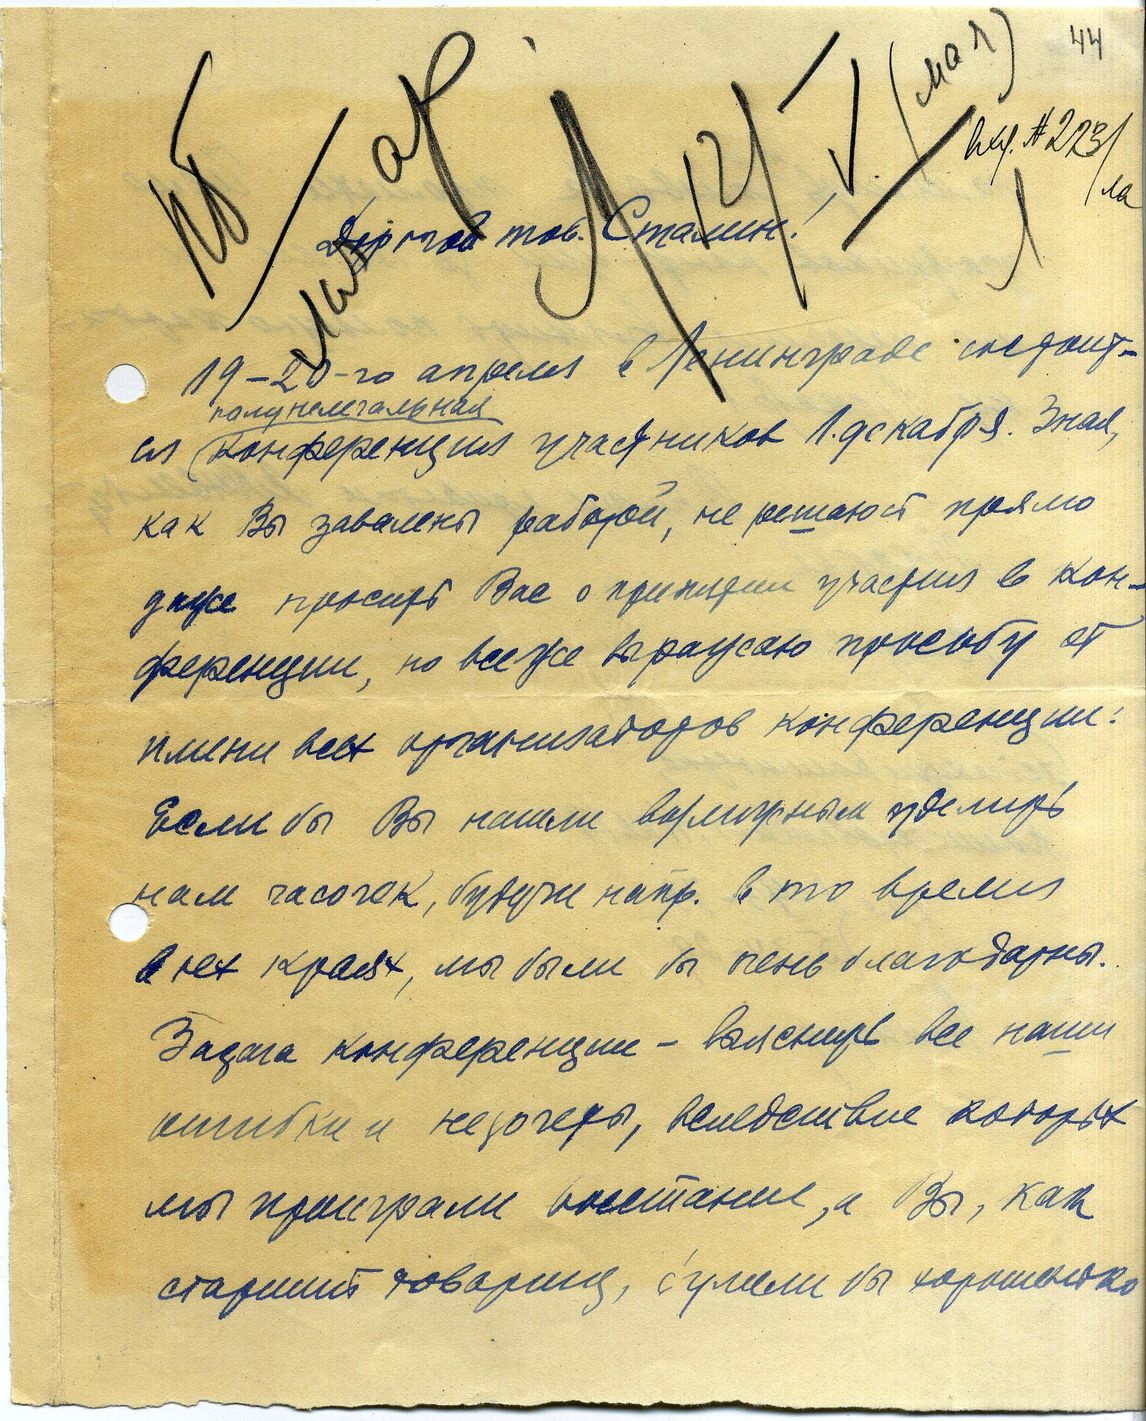 44
(мая)
вх. № 223/
ла
12/V.
Дорогой тов. Сталин!
19–20-го апреля в Ленинграде состоит-
полунелегальная
ся конференция участников 1. декабря. Зная,
как Вы завалены работой, не решаются прямо
даже просить Вас о принятии участия в кон-
ференции, но все же выражаю просьбу от
имени всех организаторов конференции:
Если бы Вы нашли возможным уделить
нам часочек, будучи напр. в то время
в тех краях, мы были бы очень благодарны.
Задача конференции – выяснить все наши
ошибки и недочеты, вследствие которых
мы проиграли восстание, а Вы, как
старший товарищ, сумели бы хорошенько